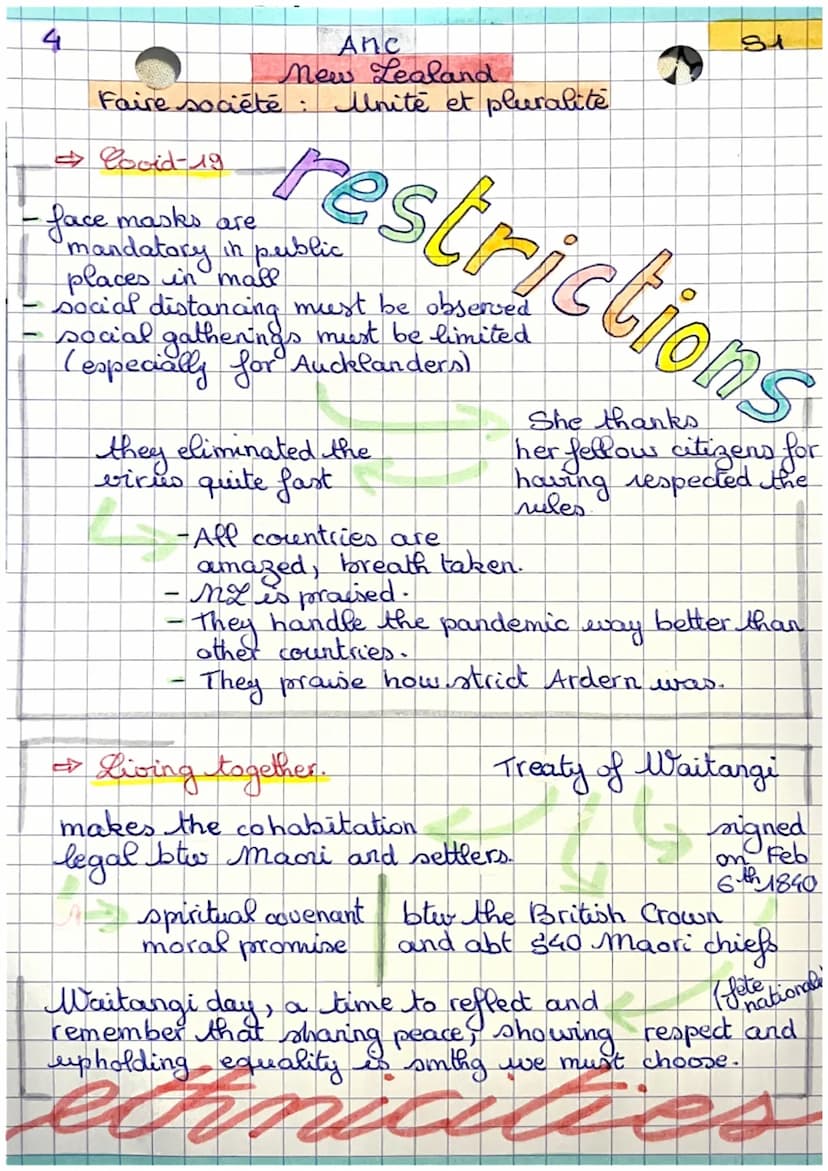 4
AMC
S1
New Zealand
Faire société : Unité et pluralité
⇒ Covid-19
restrictions
- face masks are
mandatory in public
places in mall
- social distancing must be observed
- social gatherings must be limited
(especially for Aucklanders)
She thanks
her fellow citizens for
having respected the
rules.
they eliminated the
virus quite fast
- All countries are
amazed, breath taken.
- NZ is praised.
- They handle the pandemic way better than
other countries.
- They praise how strict Ardern was.
⇒ Living together.
Treaty of Waitangi
makes the cohabitation
legal btw Maori and settlers.
signed
on Feb
6th 1840
spiritual covenant
moral promise
btw the British Crown
and abt 540 Maori chiefs
(fête
nationale)
Waitangi day, a time to reflect and
remember that sharing peace, showing respect and
upholding equality is smthg we must choose.
ethnicities